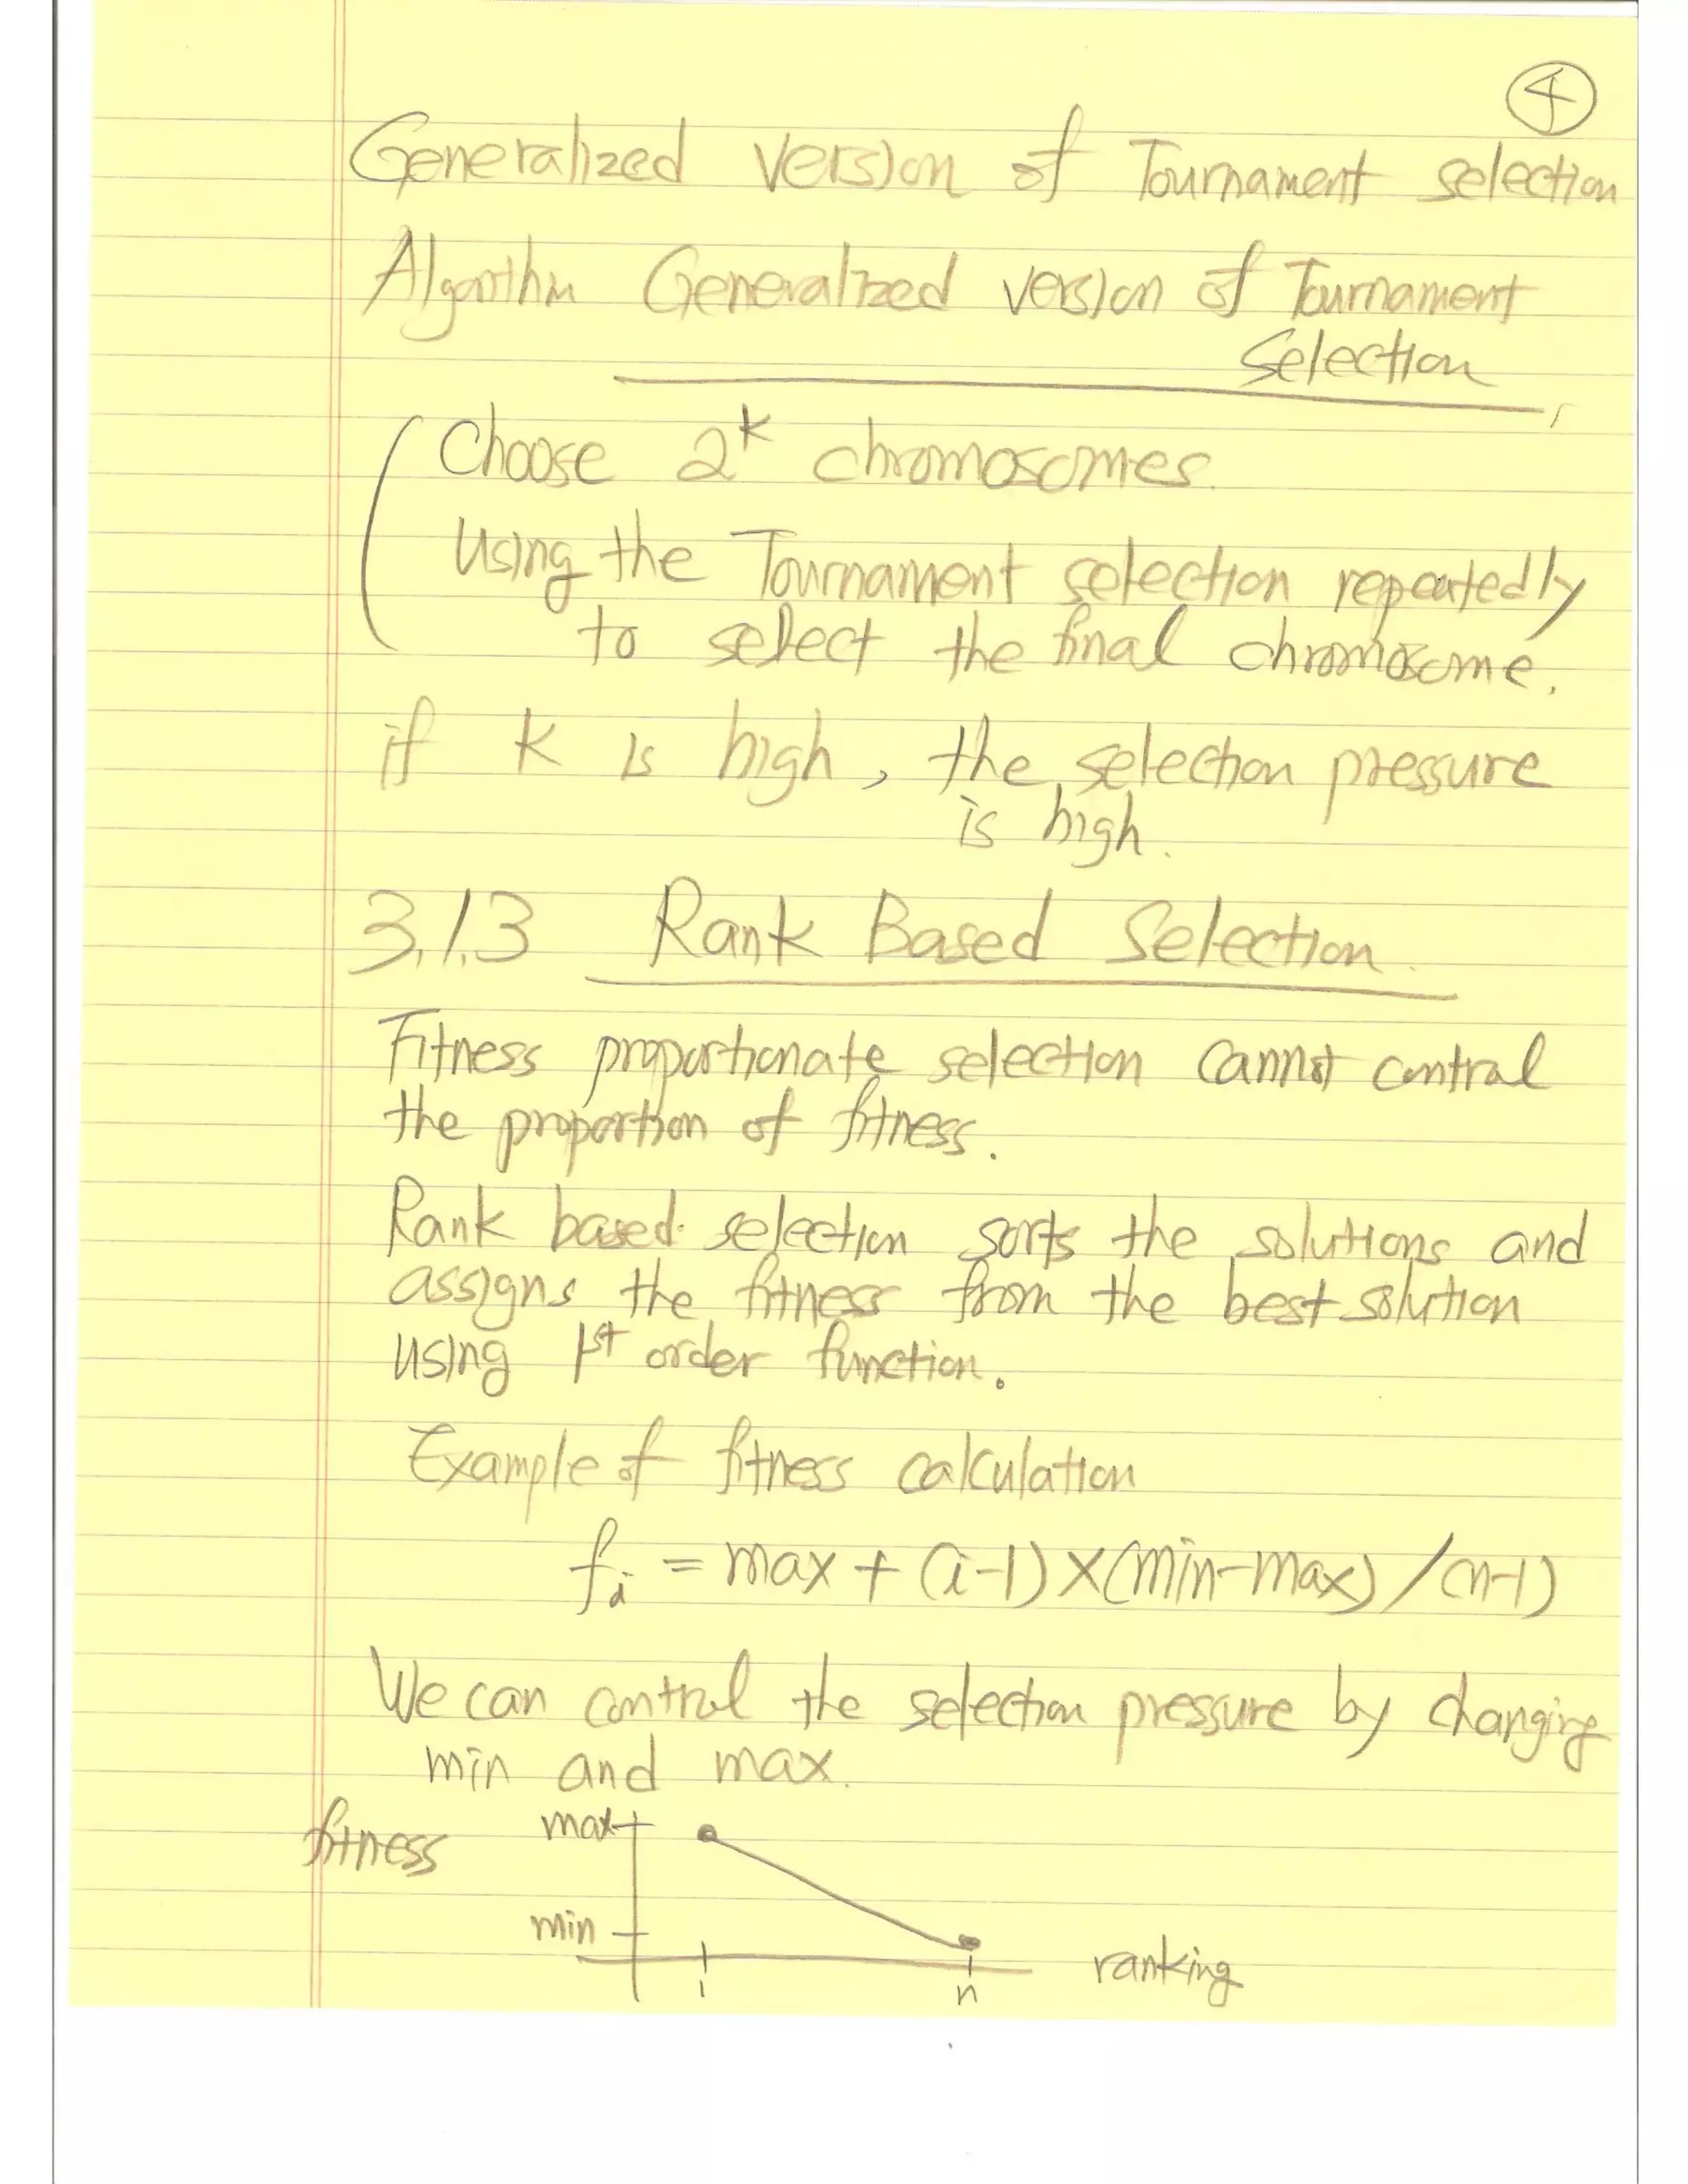 4
Generalized version of Tournament selection
Algorithm Generalized version of Tournament
Selection
Choose 2^k chromosomes.
Using the Tournament selection repeatedly
to select the final chromosome.
if k is high, the selection pressure
is high.
3.1.3 Rank Based Selection.
Fitness proportionate selection cannot control
the proportion of fitness.
Rank based selection sorts the solutions and
assigns the fitness from the best solution
using 1st order function.
Example of fitness calculation
fi = max + (i-1)×(min-max)/(n-1)
We can control the selection pressure by changing
min and max.
fitness max
min
ranking
1 n